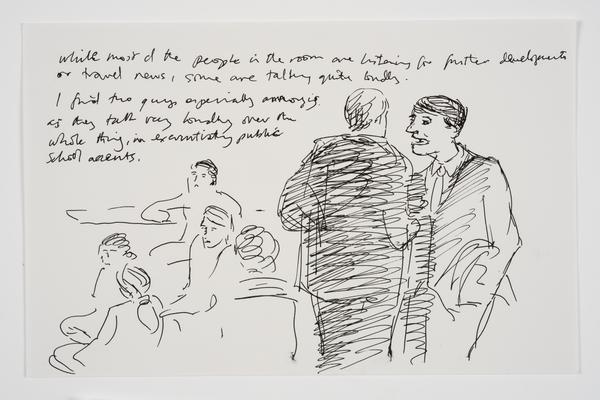 while most of the people in the room are listening for further developments
or travel news, some are talking quite loudly.
I find two guys especially annoying
as they talk very loudly over the
whole thing, in excruciating public
school accents.